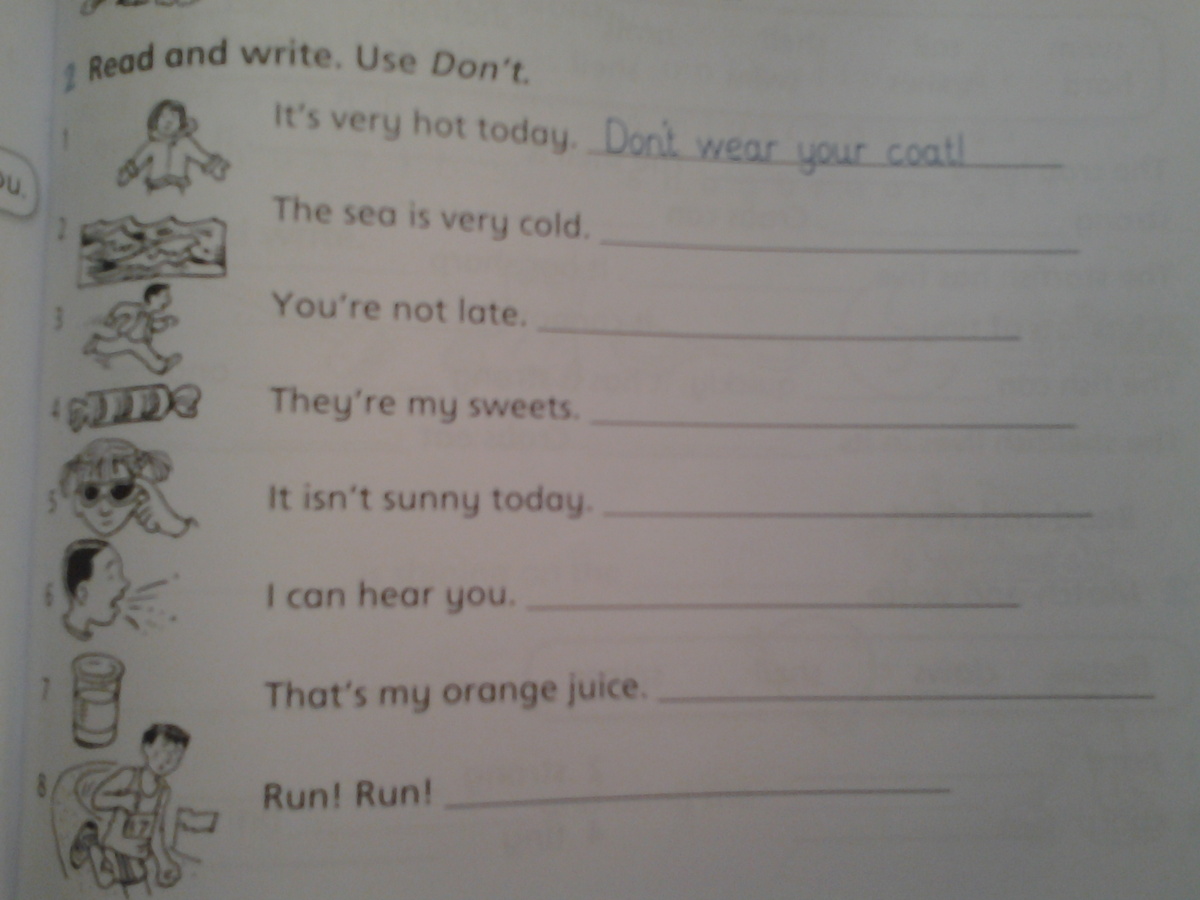 ou.
2 Read and write. Use Don't.
1 It's very hot today. Don't wear your coat!
2 The sea is very cold.
3 You're not late.
4 They're my sweets.
5 It isn't sunny today.
6 I can hear you.
7 That's my orange juice.
8 Run! Run!